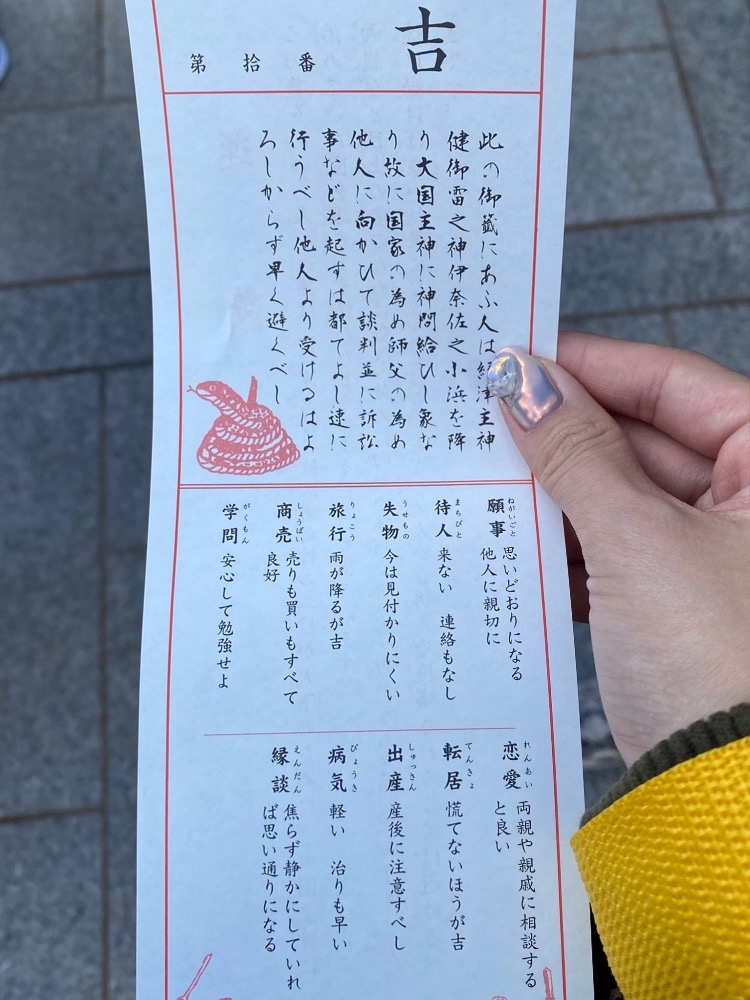 吉
第拾番
此の御籤にあふ人は経津主神
健御雷之神伊奈佐之小浜を降
り大国主神に神問給ひし象な
り故に国家の為め師父の為め
他人に向かひて談判並に訴訟
事などを起すは都てよし速に
行うべし他人より受けるはよ
ろしからず早く避くべし
ねがいごと
願事 思いどおりになる
他人に親切に
まちびと
待人 来ない 連絡もなし
うせもの
失物 今は見付かりにくい
りょこう
旅行 雨が降るが吉
しょうばい
商売 売りも買いもすべて
良好
がくもん
学問 安心して勉強せよ
れんあい
恋愛 両親や親戚に相談する
と良い
てんきょ
転居 慌てないほうが吉
しゅっさん
出産 産後に注意すべし
びょうき
病気 軽い 治りも早い
えんだん
縁談 焦らず静かにしていれ
ば思い通りになる